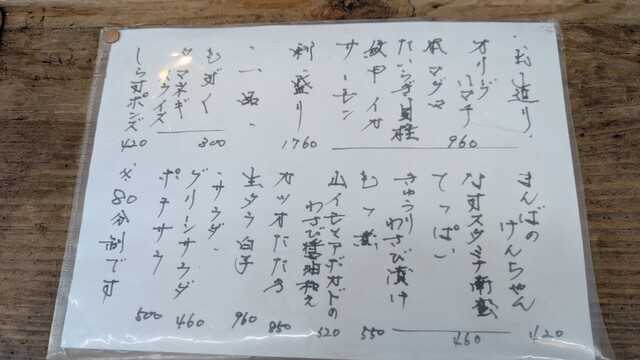 ・お造り・
オリーブ
ハマチ
本マグロ
たいらぎ貝柱
紋甲イカ
サーモン
960
刺盛り
1760
・一品・
もずく
タマネギ
スライス
300
しらすポンズ
420
まんばの
けんちゃん
420
なすスタミナ南蛮
てっぱい
きゅうり
わさび漬け
460
もつ煮
550
山イモとアボガドの
わさび醤油和え
520
カツオたたき
850
生タラ白子
960
・サラダ・
グリーンサラダ
460
ポテサラ
500
※80分制です